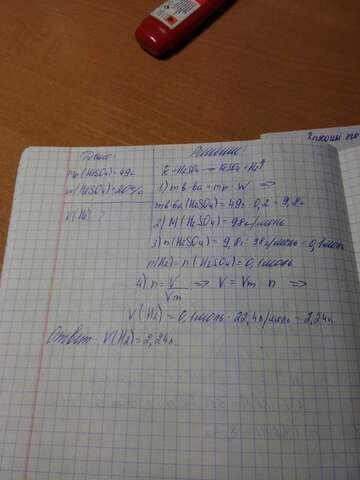 Дано:
mр(H₂SO₄)=49г
w(H₂SO₄)=20%
V(H₂)-?
Решение:
Fe+H₂SO₄ → FeSO₄+H₂↑
1) mв-ва = mр · W ⇒
mв-ва(H₂SO₄)=49г · 0,2 = 9,8г
2) M(H₂SO₄)=98г/моль
3) n(H₂SO₄)=9,8г : 98г/моль=0,1моль
n(H₂)=n(H₂SO₄)=0,1моль
4) n=V/Vm ⇒ V=Vm · n ⇒
V(H₂)=0,1моль · 22,4л/моль=2,24л
Ответ: V(H₂)=2,24л